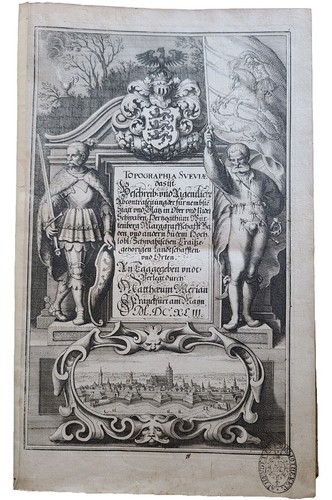 TOPOGRAPHIA SVEVIÆ
das ist
Beschreib: vnd Aigentliche
Abcontrafeitung der fürnembste
Stätt vnd Plätz in Ober vnd Nider
Schwaben, Hertzogthum Würtenberg
Marggraffschafft Baden
vnd andern zu dem Hoch
lobl: Schwabischen Craiße
gehörigen Landtschafften
vnd Orten.
An Tag gegeben vndt
Verlegt durch
Matthæum Merian
Franckfurt am Mayn
M. DC. XLIII.